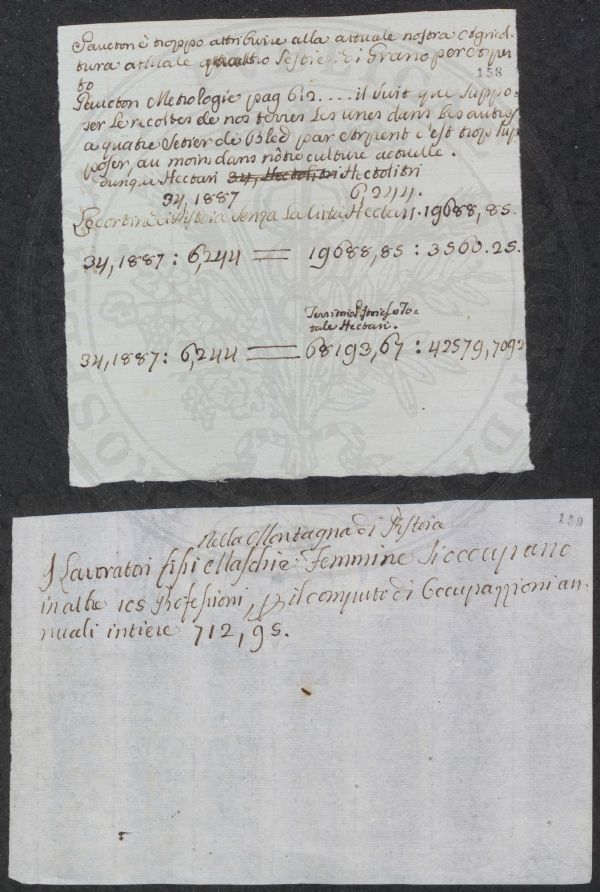 Paucton è troppo attribuire alla attuale nostra Agricol-
tura attuale quattro Sestieri di Grano per Arpen
to
158
Paucton Metrologie pag 612.... il suit que suppo-
ser le recoltes de nos terres les unes dans les autres
a quatre Setier de Bled par Arpent c'est trop sup
poser, au moins dans nôtre culture actuelle.
dunque Hectari 34, Hectolitri Hectolitri
34,1887 6,244.
Pistoia senza la Città Hectari. 19688,85.
34,1887 : 6,244 = 19688,85 : 3560.25.
To-
tale Hectari.
34,1887 : 6,244 = 68193,67 : 42579,7092
159
Nella Montagna di Pistoia
I Lavoratori fissi Maschi e Femmine si occupano
in altre 105 Professioni, il computo di Occupazzioni an-
nuali intiere 712,95.